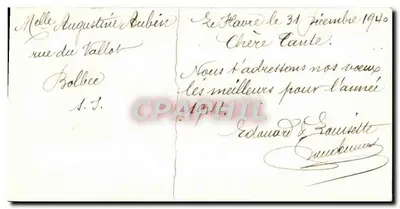 Melle Augustine Aubin
rue du Vallot
Bolbec
S. I.
Le Havre le 31 Décembre 1940
Chère Tante.
Nous t'adressons nos voeux
les meilleurs pour l'année
1941.
Edouard & Louisette
CPARAMA.com